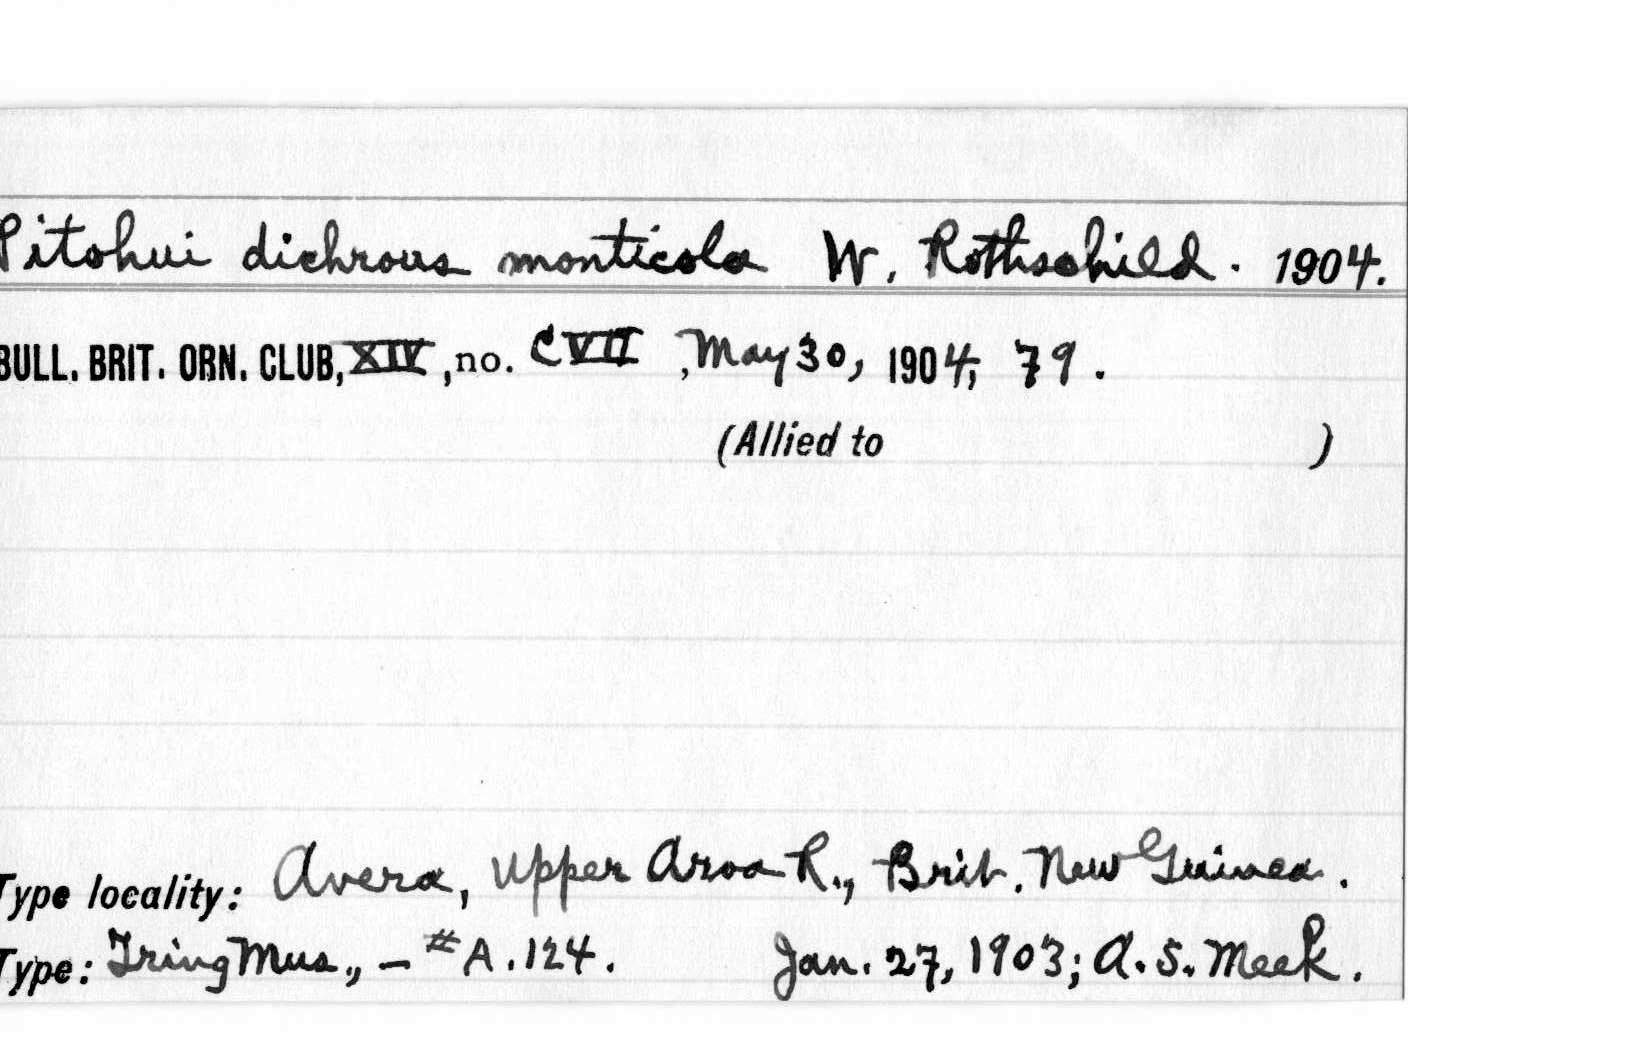 Pitohui dichrous monticola W. Rothschild. 1904.
BULL. BRIT. ORN. CLUB, XIV, no. CVII, May 30, 1904, 79.
(Allied to )
Type locality: Avera, Upper Aroa R., Brit. New Guinea.
Type: Tring Mus., – #A.124. Jan. 27, 1903; A.S. Meek.